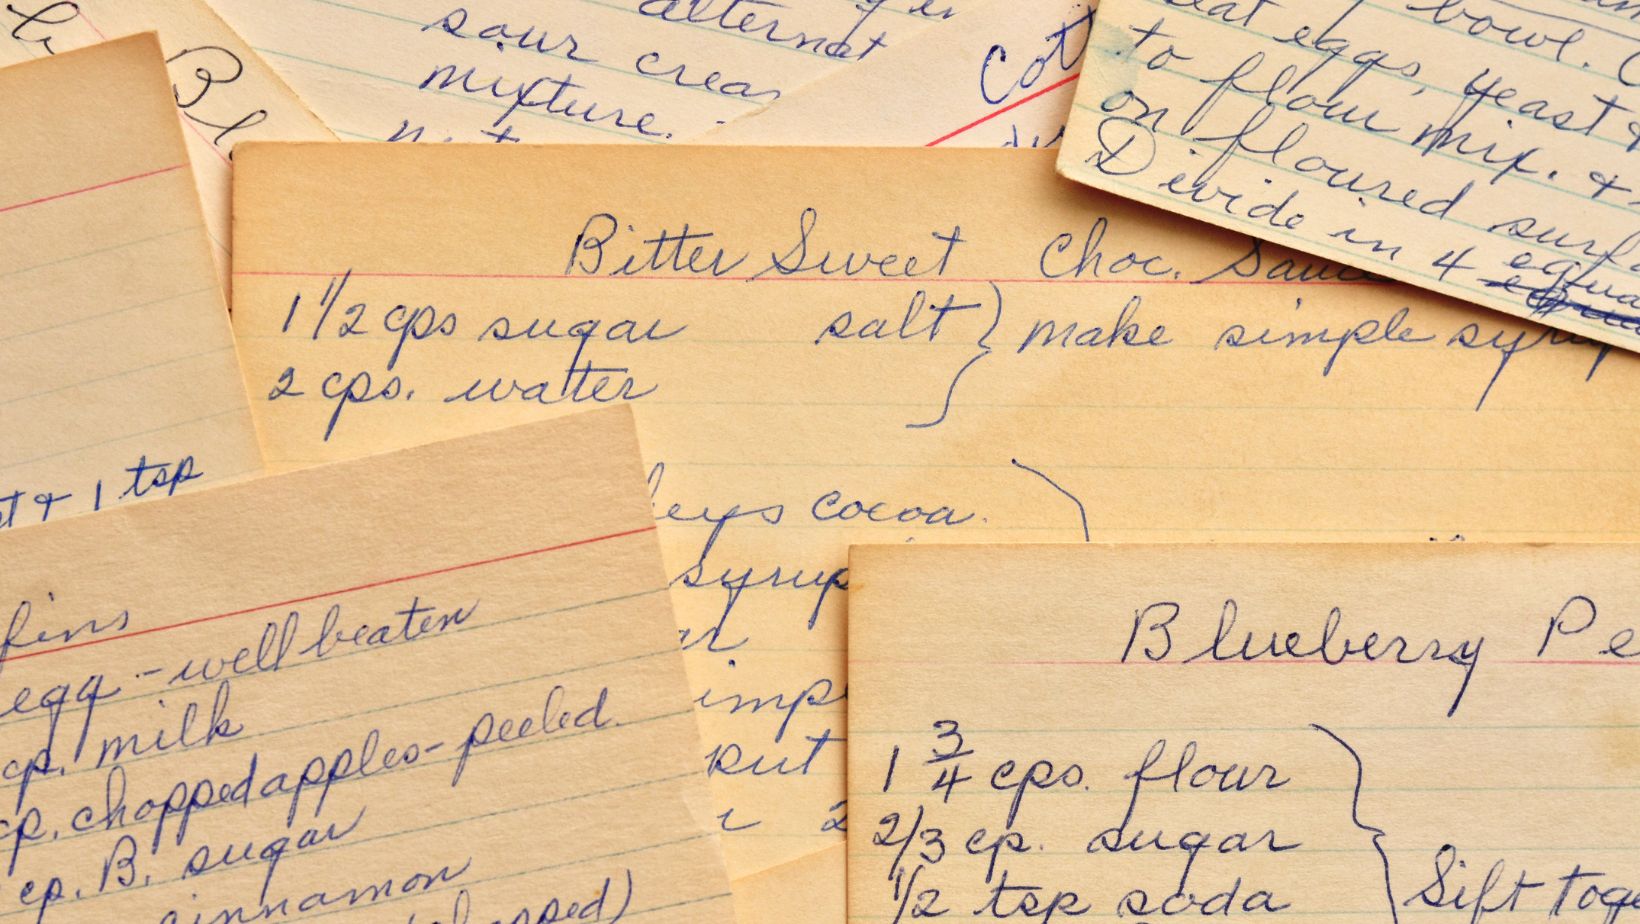 Bl
alternat
sour crea
mixture.
Cot
eat eggs, yeast &
bowl.
to flour mix. &
on floured surfa
Divide in 4 equa
Bitter Sweet Choc. Sauce
1 1/2 cps sugar salt } make simple syrup
2 cps. water
eys cocoa.
syrup
ar
imp
put
2
st & 1 tsp
fins
egg - well beaten
cp. milk
cp. chopped apples - peeled.
cp. B. sugar
cinnamon
chopped)
Blueberry Pe
1 3/4 cps. flour
2/3 cp. sugar
1/2 tsp soda
} Sift toge